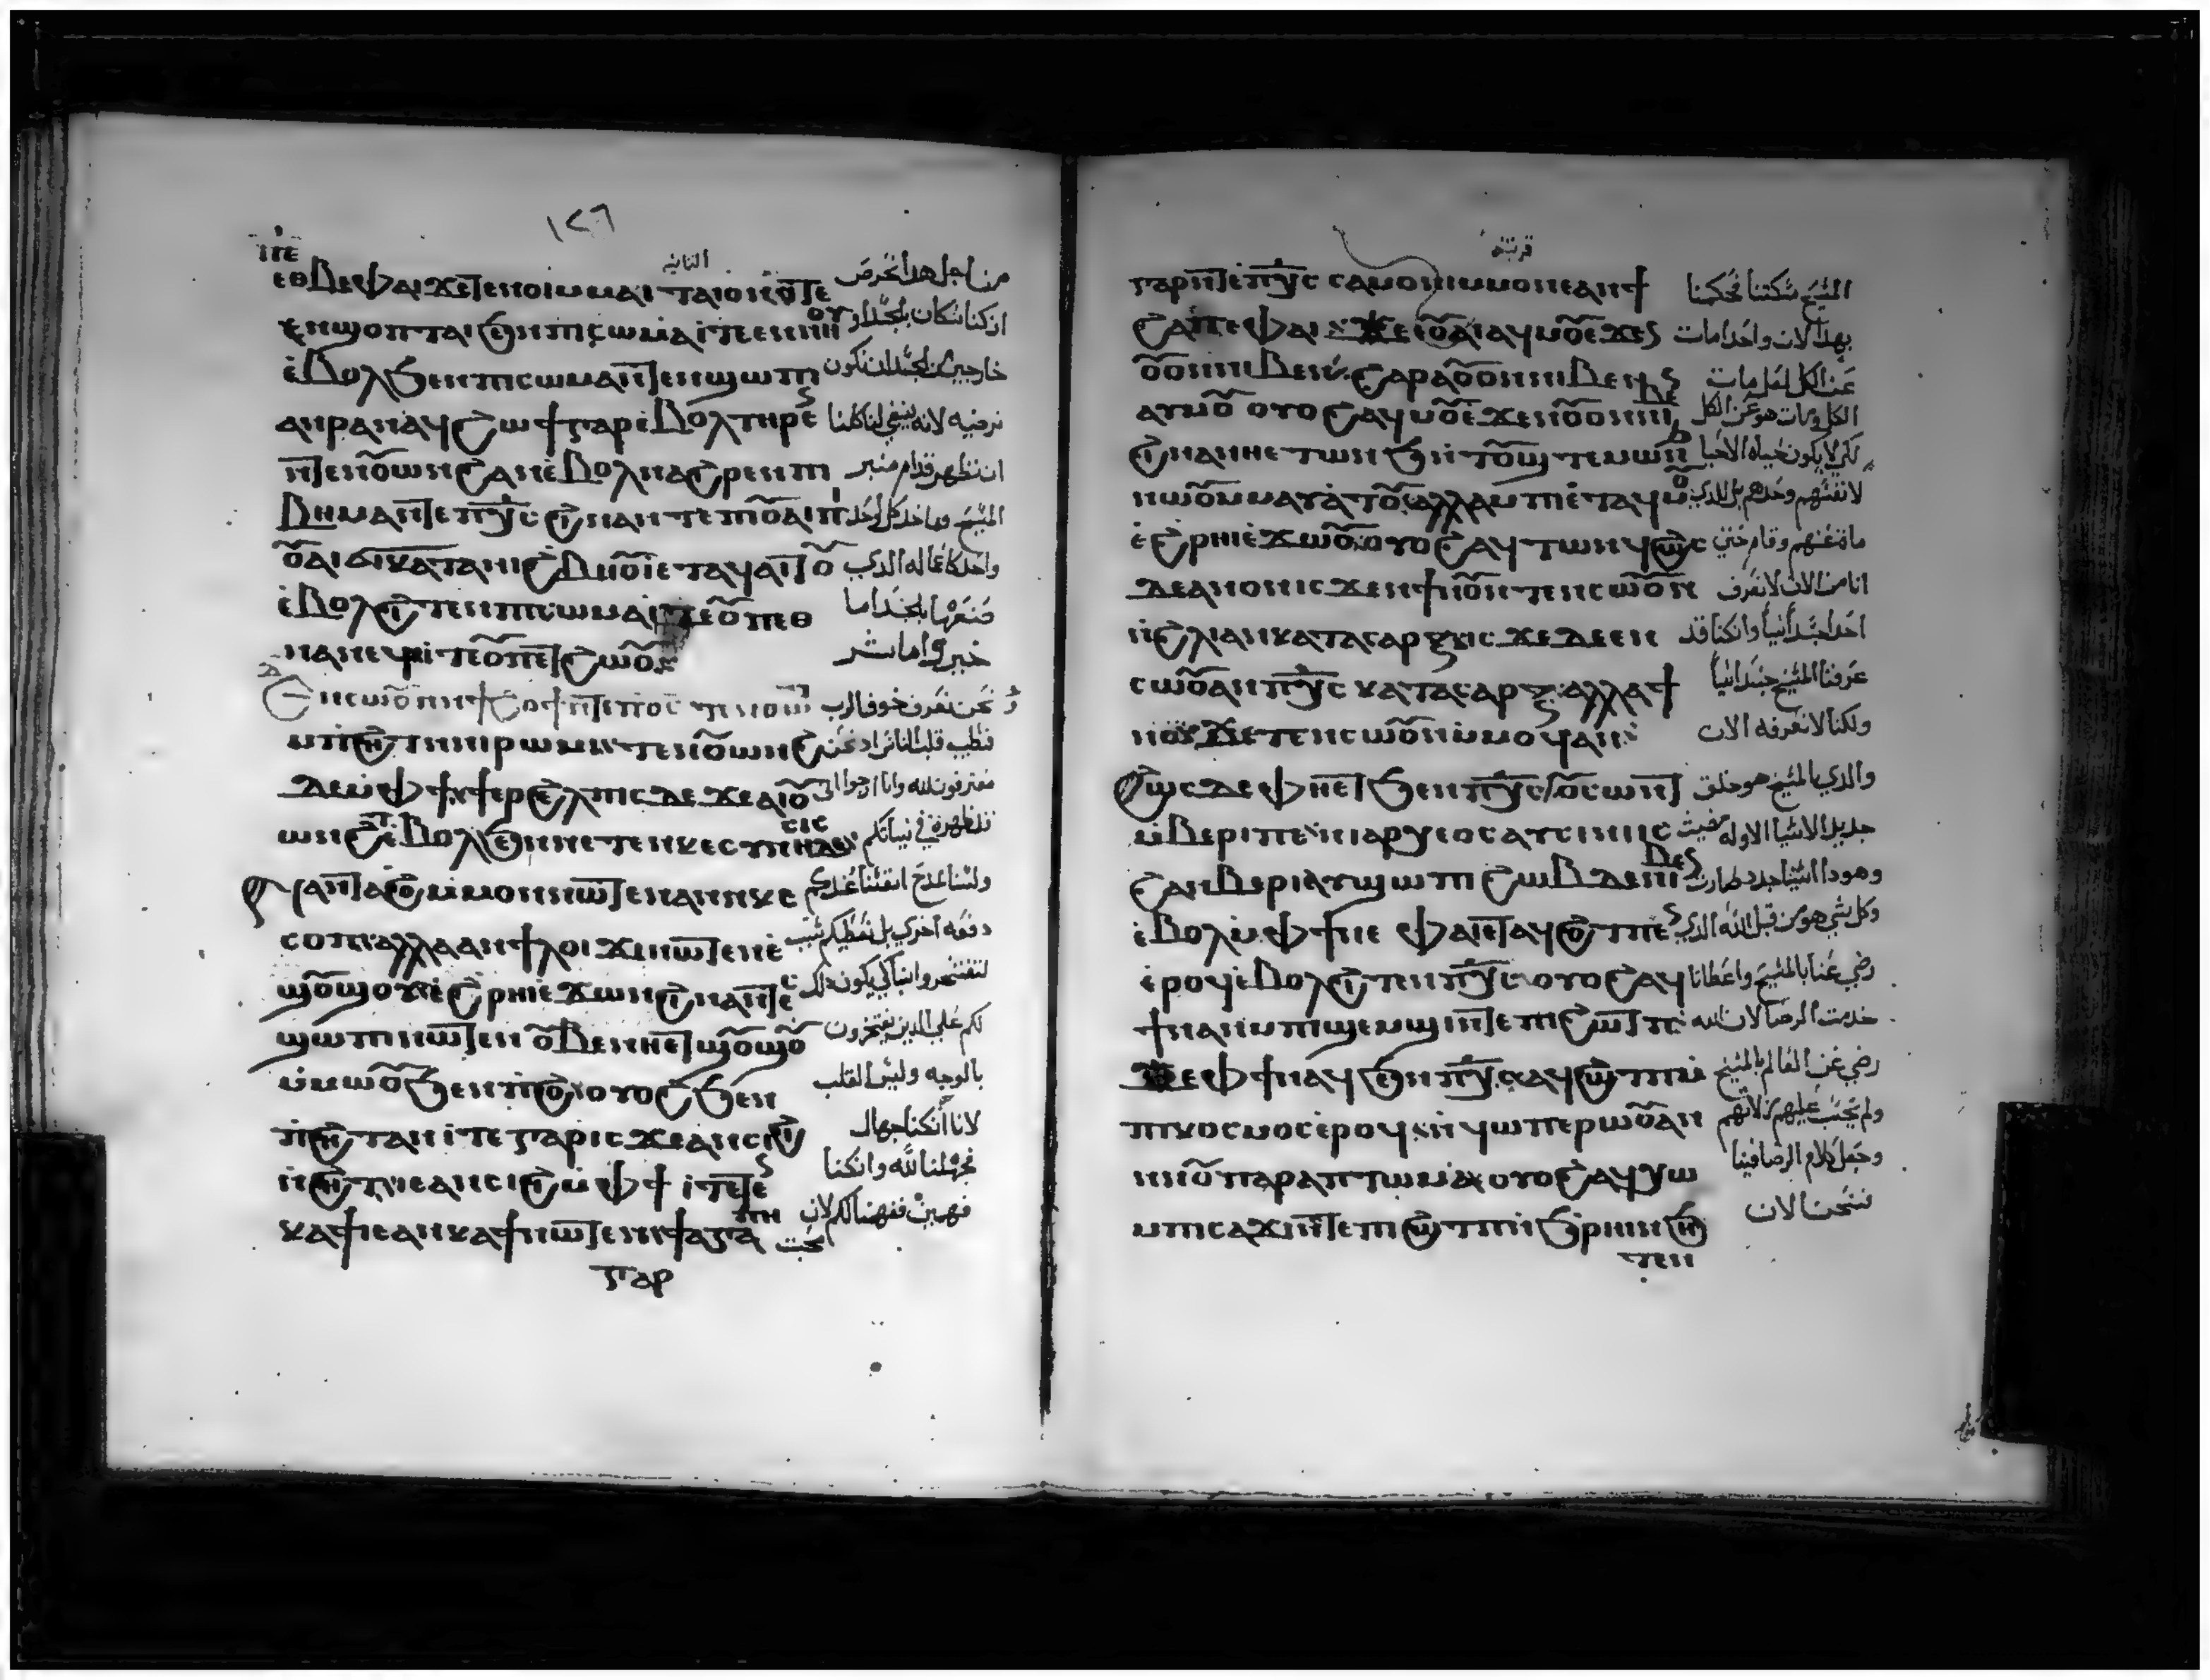 ١٢٦
الثانيه
ⲉⲑⲃⲉⲫⲁⲓ ϫⲉ ⲧⲉⲛⲟⲓ ⲙⲙⲁⲓⲧⲁⲓⲟ ⲓⲧⲉ من اجل هدا نحرص
ⲉⲛϣⲟⲡ ⲧⲁⲓ ϧⲉⲛ ⲡⲓⲥⲱⲙⲁ ⲓⲧⲉ ان كنا سكان بالجسد او
ⲉⲃⲟⲗ ϧⲉⲛ ⲡⲓⲥⲱⲙⲁ ⲛⲧⲉⲛϣⲱⲡⲓ خارجين من الجسد ان نكون
ⲁⲛⲣⲁⲛⲁϥ ϩⲱϯ ⲅⲁⲣ ⲉⲃⲟⲗ ⲧⲏⲣⲉ نرضيه لانه ينبغي لنا كلنا
ⲛⲧⲉⲛⲟⲩⲱⲛϩ ⲁⲛⲉⲃⲟⲗ ⲛⲁϩⲣⲉⲛ ⲡⲓ ان نظهر قدام منبر
ⲃⲏⲙⲁ ⲛⲧⲉ ⲡⲭⲥ ϩⲓⲛⲁ ⲛⲧⲉ ⲡⲓⲟⲩⲁⲓ ⲡⲓ المسيح وياخد كل احد
ⲟⲩⲁⲓ ϭⲓ ⲕⲁⲧⲁ ⲛⲓϩⲃⲏⲟⲩⲓ ⲉⲧⲁϥⲁⲓⲧⲟⲩ واحد كاعماله الذي
ⲉⲃⲟⲗϩⲓⲧⲉⲛ ⲡⲓⲥⲱⲙⲁ ⲓⲧⲉ ⲟⲩⲡⲉⲑ صنعها بالجسد اما
ⲛⲁⲛⲉϥ ⲓⲧⲉ ⲟⲩⲡⲉⲧϩⲱⲟⲩ خير واما شر
ⲉⲛⲥⲱⲟⲩⲛ ⲛϯϩⲟϯ ⲛⲧⲉ ⲡⲟⲥ ⲧⲉⲛⲑⲱⲧ نحن نعرف خوف الرب
ⲙⲡϩⲏⲧ ⲛⲛⲓⲣⲱⲙⲓ ⲧⲉⲛⲟⲩⲱⲛϩ فنطيب قلب الناس اد نحن
ⲇⲉ ⲙⲫϯ ϯⲉⲣϩⲉⲗⲡⲓⲥ ⲇⲉ ϫⲉ ⲁⲓⲟⲩ معترفون لله وانا ارجوا اني
ⲱⲛϩ ⲉⲃⲟⲗ ϧⲉⲛ ⲛⲉⲧⲉⲛⲕⲉⲥⲩⲛⲏⲇⲉⲥⲓⲥ
ⲁⲛⲧⲁϩⲟ ⲙⲙⲟⲛ ⲛⲱⲧⲉⲛ ⲁⲛ ⲛⲕⲉ
ⲥⲟⲡ ⲁⲗⲗⲁ ⲁⲛϯⲗⲟⲓϫⲓ ⲛⲱⲧⲉⲛ ⲉ دفعه اخري بل نعطيكم سبب
ϣⲟⲩϣⲟⲩ ⲉϩⲣⲏⲓ ⲉϫⲱⲛ ϩⲓⲛⲁ ⲛⲧⲉⲥ لتفتخروا
ϣⲱⲡⲓ ⲛⲱⲧⲉⲛ ⲟⲩⲃⲉ ⲛⲏⲉⲧϣⲟⲩϣⲟⲩ لكم علي الدين يفتخرون
ⲙⲙⲱⲟⲩ ϧⲉⲛ ⲡϩⲟ ⲟⲩⲟϩ ϧⲉⲛ بالوجه وليس القلب
ⲡϩⲏⲧ ⲁⲛ ⲓⲧⲉ ⲅⲁⲣ ⲓⲥϫⲉ ⲁⲛⲥⲓϩⲓ لانا ان كنا جهال
ⲛϩⲏⲧ ⲛⲉⲁⲛⲥⲓϩⲓ ⲙⲫϯ ⲓⲧⲉ فجهلنا لله وان كنا
ⲕⲁϯ ⲛⲉⲁⲛⲕⲁϯ ⲛⲱⲧⲉⲛ ϯⲁⲅⲁⲡⲏ فهمين ففهمنا لكم لان
ⲅⲁⲣ
قرنتيه
ⲅⲁⲣ ⲛⲧⲉ ⲡⲭⲥ ⲥⲁⲙⲟⲛⲓ ⲙⲙⲟⲛ ⲉⲁⲛϯ المسيح
ϩⲁⲡ ⲉⲫⲁⲓ ϫⲉ ⲓⲥϫⲉ ⲟⲩⲁⲓ ⲁϥⲙⲟⲩ ⲉϫⲉⲛ بهدا الان واحد مات
ⲟⲩⲟⲛ ⲛⲓⲃⲉⲛ ϩⲁⲣⲁ ⲟⲩⲟⲛ ⲛⲓⲃⲉⲛ عن الكل
ⲁⲩⲙⲟⲩ ⲟⲩⲟϩ ⲁϥⲙⲟⲩ ⲉϫⲉⲛ ⲟⲩⲟⲛ ⲛⲓⲃⲉⲛ الكل ومات هو عن الكل
ϩⲓⲛⲁ ⲛⲏⲉⲧⲱⲛϧ ⲛⲧⲟⲩϣⲧⲉⲙⲱⲛϧ لكي لا يكون حياه الاحيا
ⲛⲱⲟⲩ ⲙⲙⲁⲩⲁⲧⲟⲩ ⲁⲗⲗⲁ ⲙⲫⲏⲉⲧⲁϥⲙⲟⲩ لانفسهم وحدهم بل للدي
ⲉϩⲣⲏⲓ ⲉϫⲱⲟⲩ ⲟⲩⲟϩ ⲁϥⲧⲱⲛϥ ϩⲱⲥ مات عنهم وقام حتي
ⲇⲉ ⲁⲛⲟⲛ ⲓⲥϫⲉⲛ ϯⲛⲟⲩ ⲛⲧⲉⲛⲥⲱⲟⲩⲛ انا من الان لا نعرف
ⲛϩⲗⲓ ⲁⲛ ⲕⲁⲧⲁ ⲥⲁⲣⲝ ⲓⲥϫⲉ ⲇⲉ ⲉⲛ احد جسدانيا وان كنا قد
ⲥⲱⲟⲩⲛ ⲙⲡⲭⲥ ⲕⲁⲧⲁ ⲥⲁⲣⲝ ⲁⲗⲗⲁ ϯ عرفنا المسيح جسدانيا
ⲛⲟⲩ ϫⲉ ⲧⲉⲛⲥⲱⲟⲩⲛ ⲙⲙⲟϥ ⲁⲛ ولكنا لا نعرفه الان
ϩⲱⲥ ⲇⲉ ⲫⲏⲉⲧ ϧⲉⲛ ⲡⲭⲥ ⲟⲩⲥⲱⲛⲧ والدي بالمسيح هو خلق
ⲙⲃⲉⲣⲓ ⲡⲉ ⲛⲓⲁⲣⲭⲉⲟⲥ ⲁⲩⲥⲓⲛⲓ جديد الاشيا الاوله
ϩⲁⲛⲃⲉⲣⲓ ⲁⲩϣⲱⲡⲓ ϩⲱⲃ ⲇⲉ ⲛⲓⲃⲉⲛ وهودا اشيا جدد صارت
ⲉⲃⲟⲗ ⲙⲫϯ ⲛⲉ ⲫⲁⲓ ⲉⲧⲁϥϩⲟⲧⲡⲉⲛ وكل شي هو من قبل الله الدي
ⲉⲣⲟϥ ⲉⲃⲟⲗϩⲓⲧⲉⲛ ⲡⲭⲥ ⲟⲩⲟϩ ⲁϥ رضي عنا بالمسيح واعطانا
ϯ ⲛⲁⲛ ⲙⲡϣⲉⲙϣⲓ ⲛⲧⲉ ⲡⲓϩⲱⲧⲡ خدمت الرضا لان الله
ϫⲉ ⲫϯ ⲛⲁϥ ϧⲉⲛ ⲡⲭⲥ ⲉⲁϥϩⲱⲧⲡ ⲙ رضي عن العالم بالمسيح
ⲡⲓⲕⲟⲥⲙⲟⲥ ⲉⲣⲟϥ ⲛϥⲱⲡ ⲉⲣⲱⲟⲩ ⲁⲛ ولم يحسب عليهم
ⲛⲛⲟⲩⲡⲁⲣⲁⲡⲧⲱⲙⲁ ⲟⲩⲟϩ ⲁϥⲭⲱ وجعل كلام الرضا فينا
ⲙⲡⲥⲁϫⲓ ⲛⲧⲉ ⲡⲓϩⲱⲧⲡ ⲛϧⲣⲏⲓ ⲛϧⲏ فنحن الان
ⲧⲉⲛ